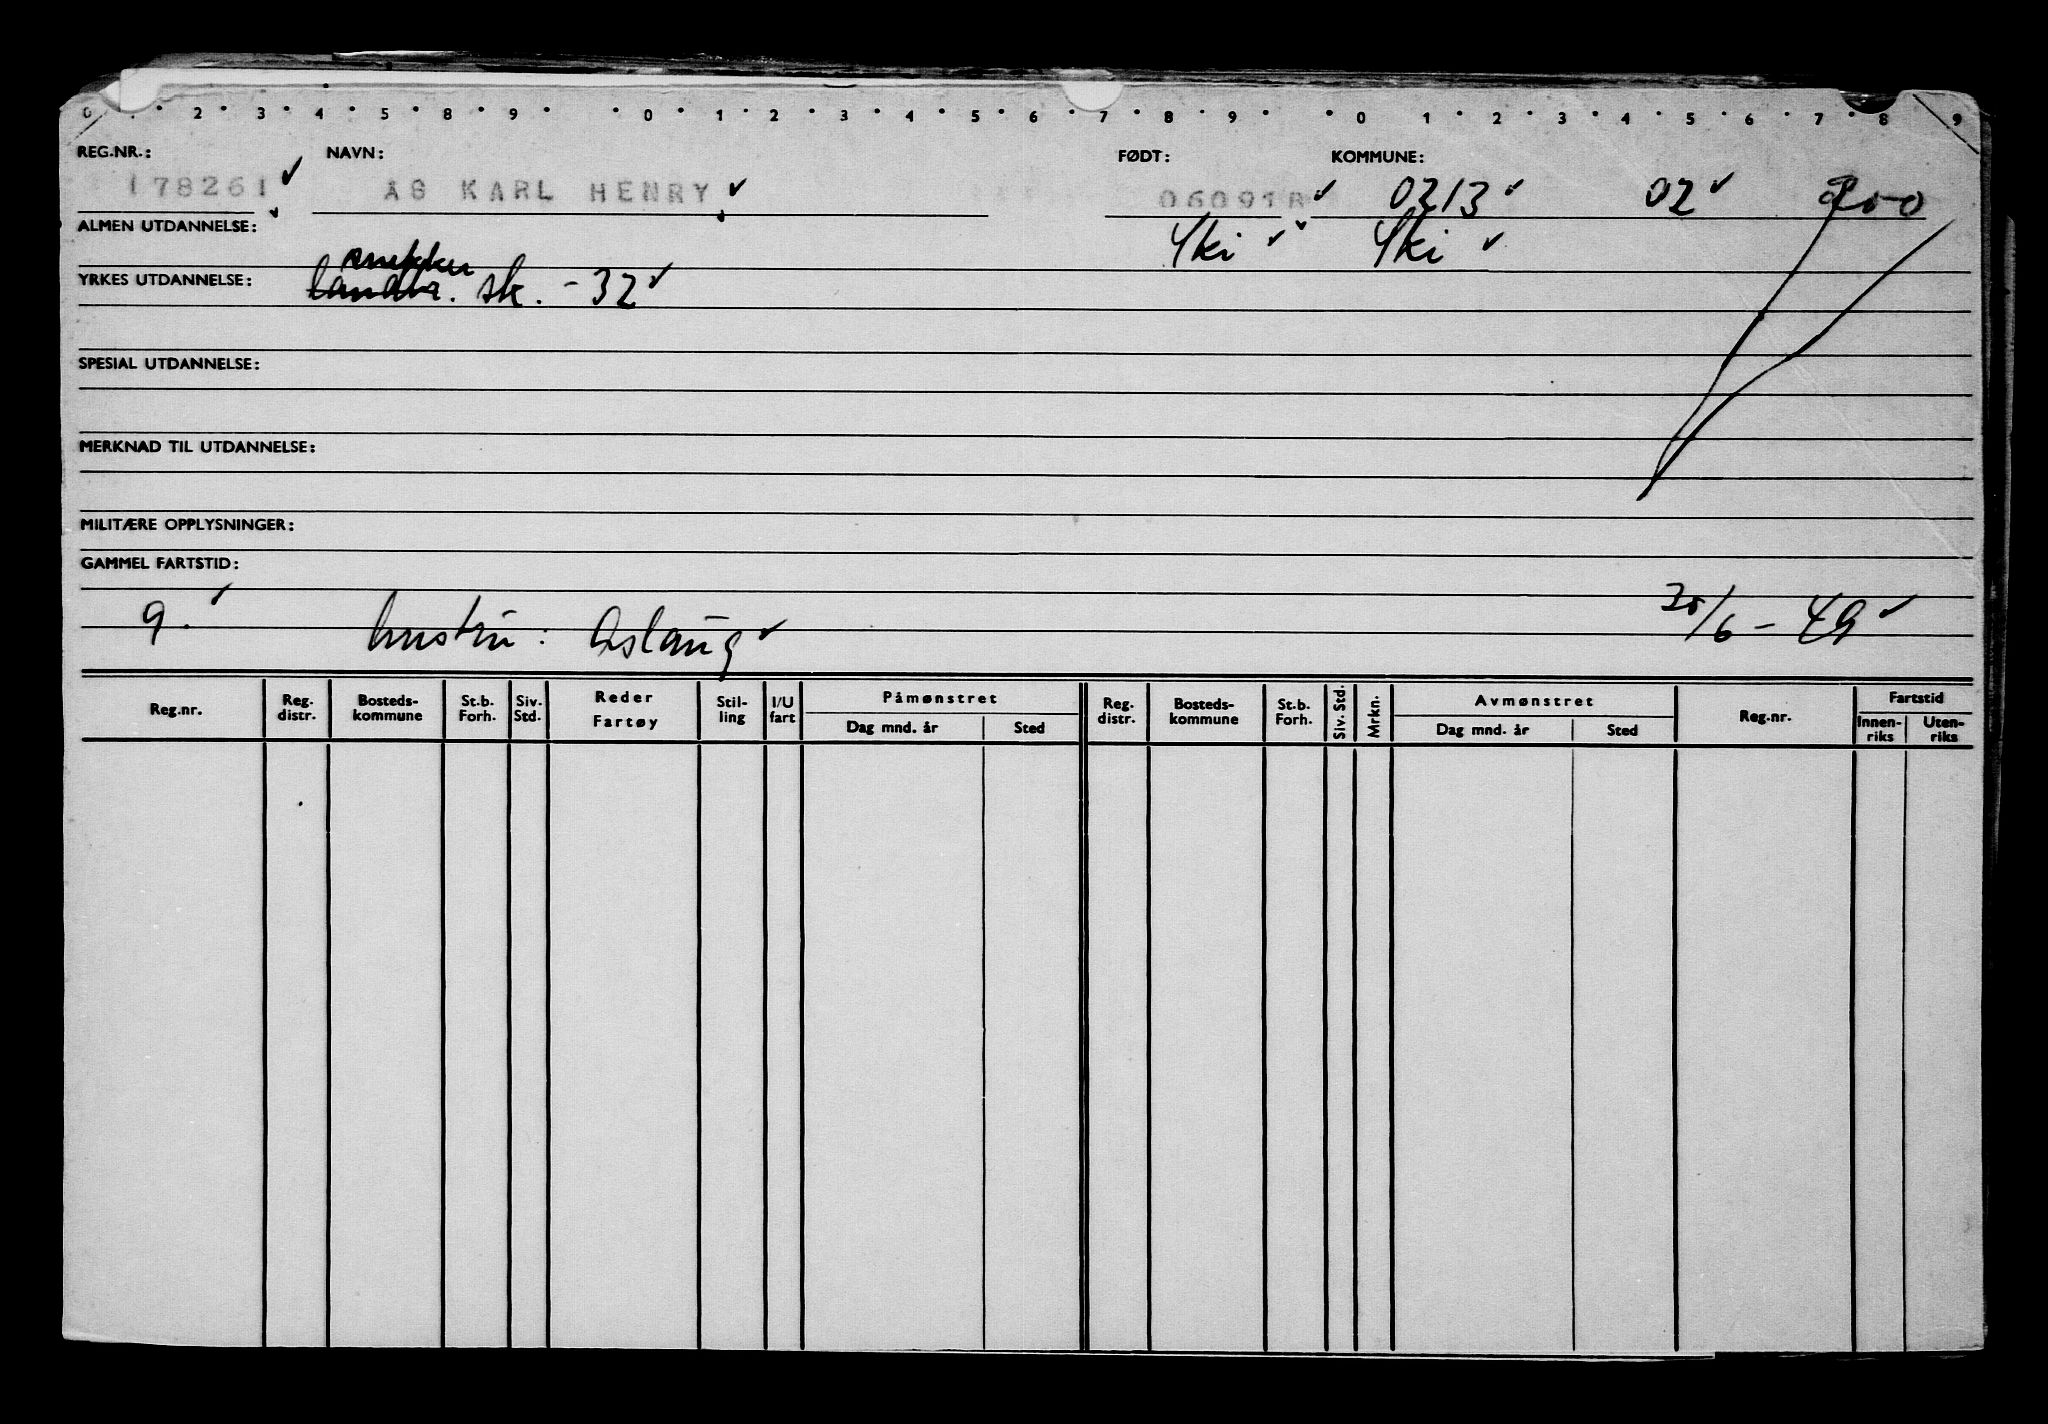 0 1 2 3 4 5 8 9 0 1 2 3 4 5 6 7 8 9 0 1 2 3 4 5 6 7 8 9
REG.NR.: NAVN: FØDT: KOMMUNE:
178261 ÅS KARL HENRY 060918 0213 02
ALMEN UTDANNELSE: Ski Ski
snekker
YRKES UTDANNELSE: landbr. sk. - 32
SPESIAL UTDANNELSE:
MERKNAD TIL UTDANNELSE:
MILITÆRE OPPLYSNINGER:
GAMMEL FARTSTID:
g. hustru: Aslaug 30/6 - 49
Reg.nr. Reg. distr. Bosteds-kommune St.b. Forh. Siv. Std. Reder Fartøy Stil-ling I/U fart Påmønstret Dag mnd. år Sted Reg. distr. Bosteds-kommune St.b. Forh. Siv. Std. Mrkn. Avmønstret Dag mnd. år Sted Reg.nr. Fartstid Innen-riks Uten-riks